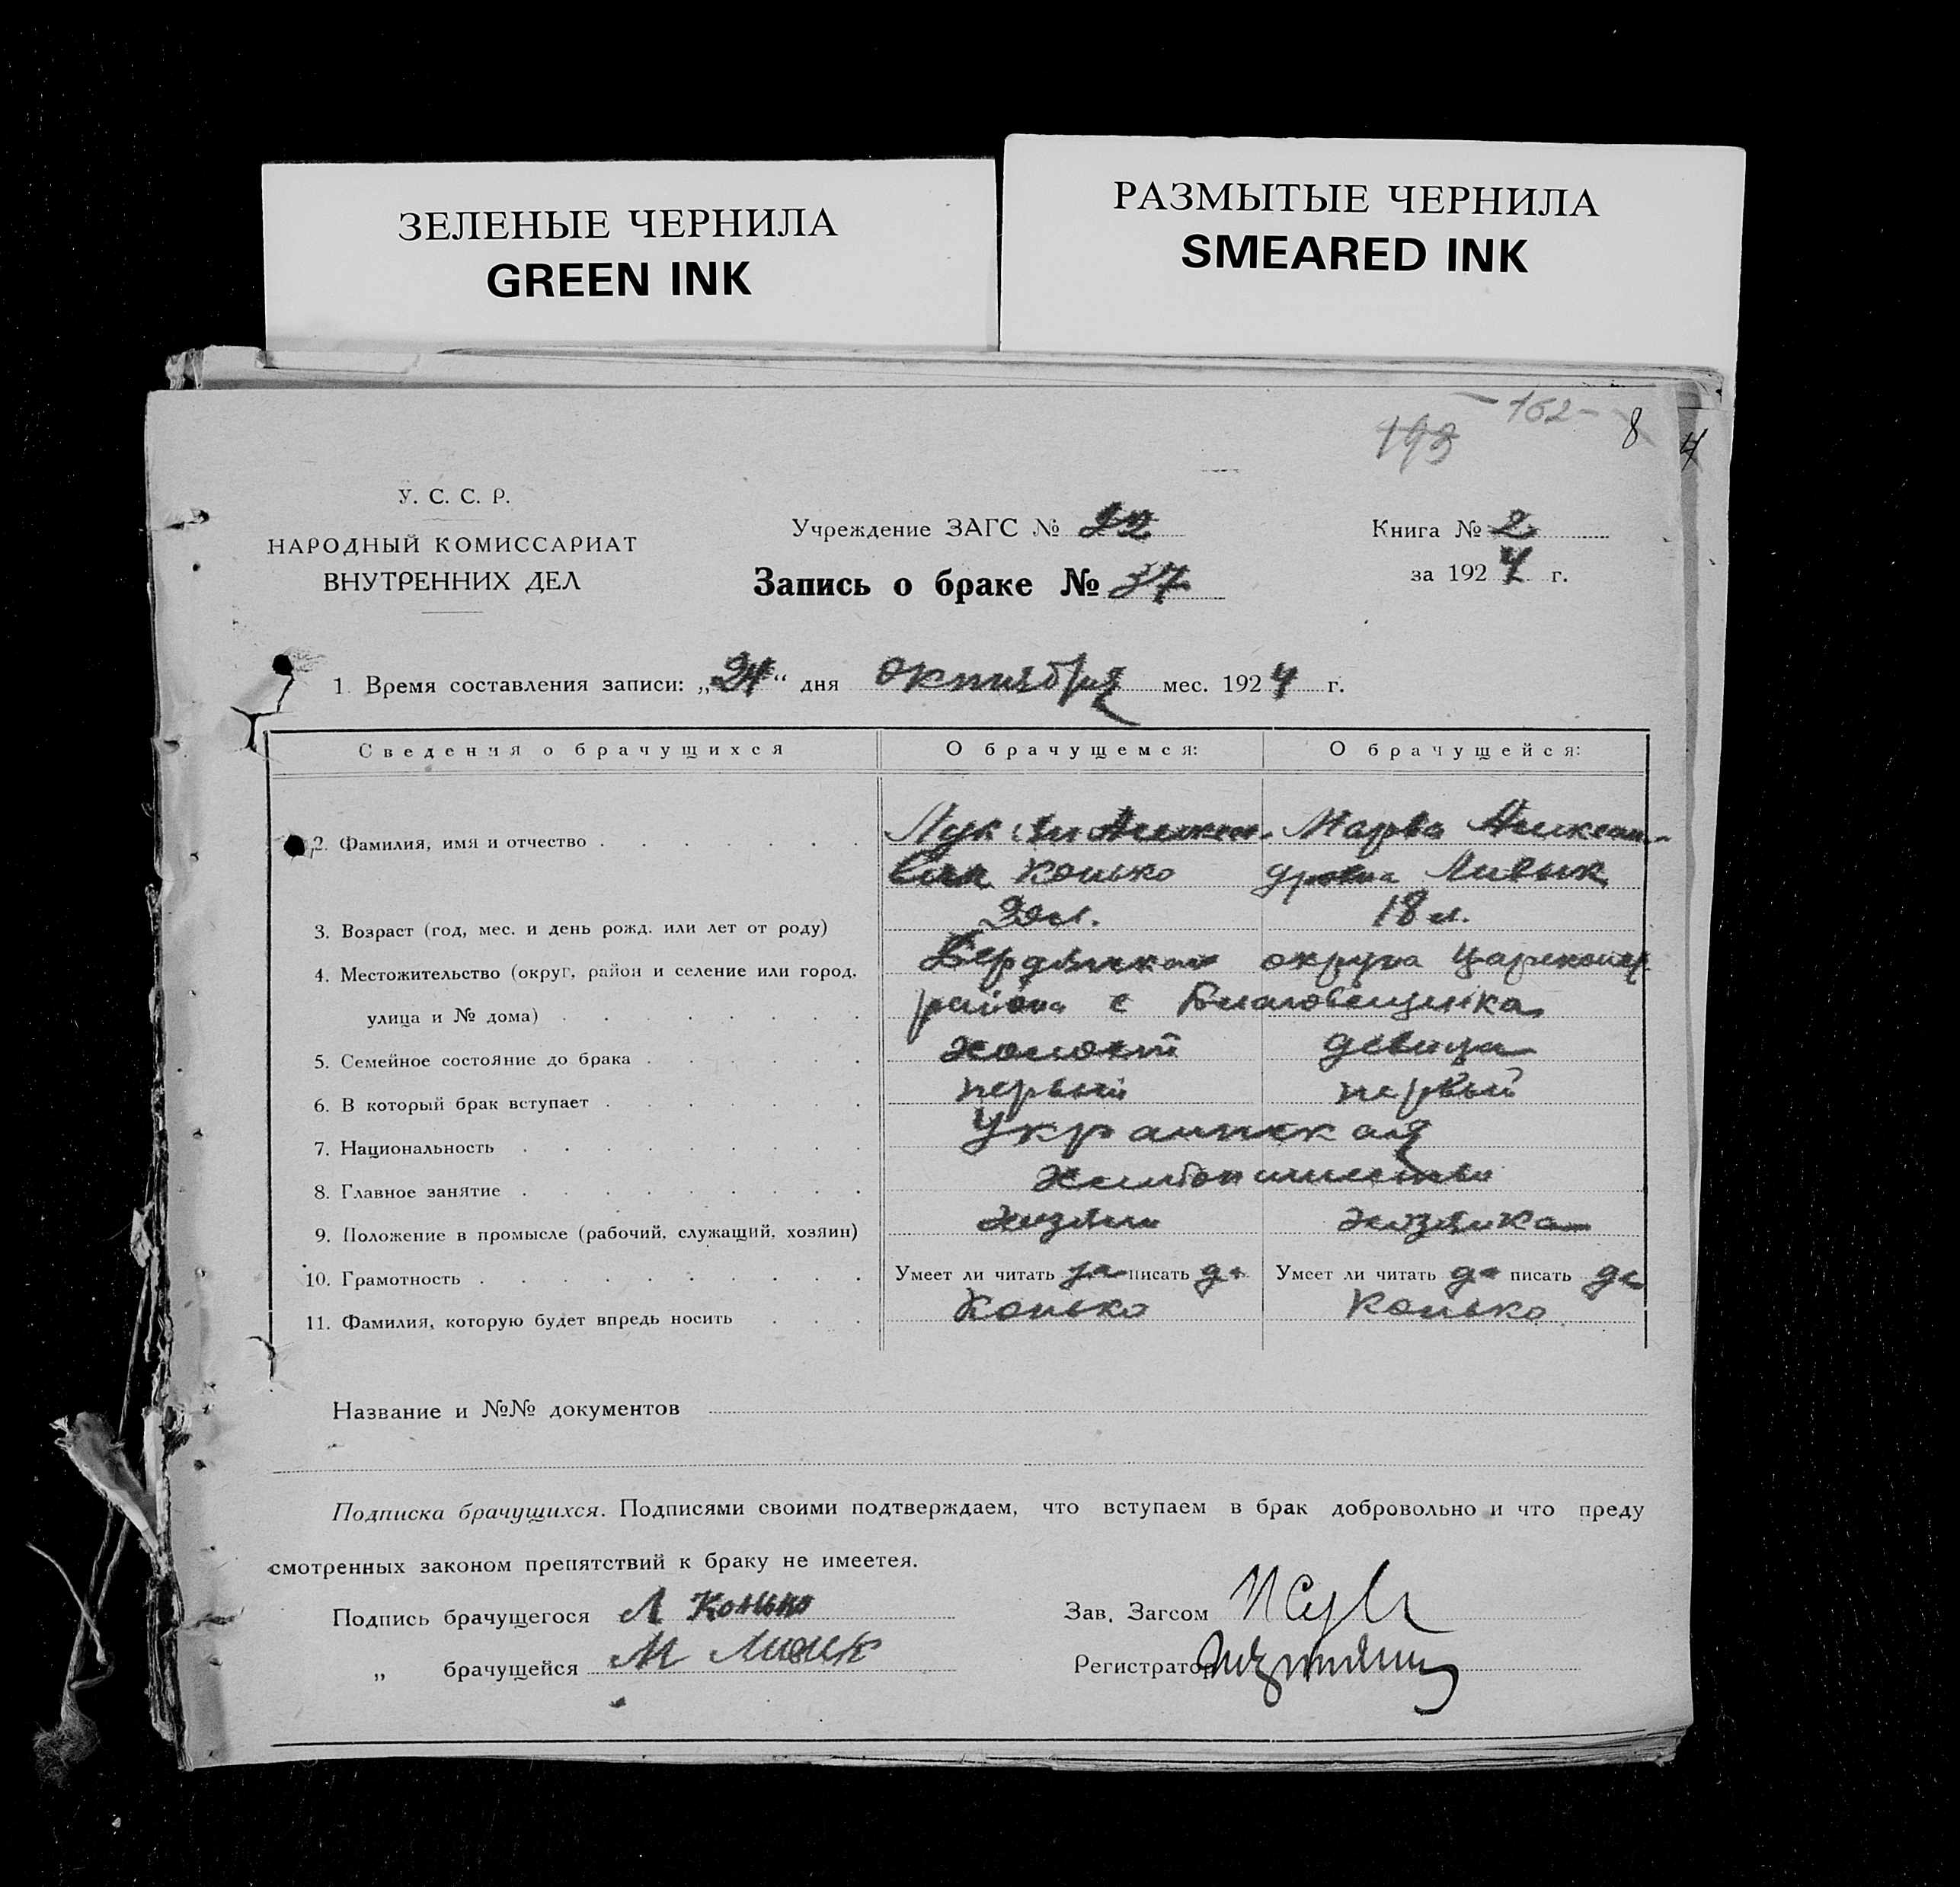 ЗЕЛЕНЫЕ ЧЕРНИЛА
GREEN INK
РАЗМЫТЫЕ ЧЕРНИЛА
SMEARED INK
-162-
193
8
4
У. С. С. Р.
НАРОДНЫЙ КОМИССАРИАТ
ВНУТРЕННИХ ДЕЛ
Учреждение ЗАГС № 22
Запись о браке № 37
Книга № 2
за 1924 г.
1. Время составления записи: „24“ дня октября мес. 1924 г.
Сведения о брачущихся О брачущемся: О брачущейся:
2. Фамилия, имя и отчество Лукиян Марва Алексан-
Конько дровна Ливык
3. Возраст (год, мес. и день рожд. или лет от роду) л. 18 л.
4. Местожительство (округ, район и селение или город, Бердянского округа Царекон.
улица и № дома) района с Благовещенка
5. Семейное состояние до брака холостой девица
6. В который брак вступает первый первый
7. Национальность Украинская
8. Главное занятие Хлебопашество
9. Положение в промысле (рабочий, служащий, хозяин) хозяин хозяйка
10. Грамотность Умеет ли читать да писать да Умеет ли читать да писать да
11. Фамилия, которую будет впредь носить Конько Конько
Название и №№ документов
Подписка брачущихся. Подписями своими подтверждаем, что вступаем в брак добровольно и что преду
смотренных законом препятствий к браку не имеетея.
Подпись брачущегося Л Конько
Зав. Загсом
„ брачущейся М Ливик
Регистратор